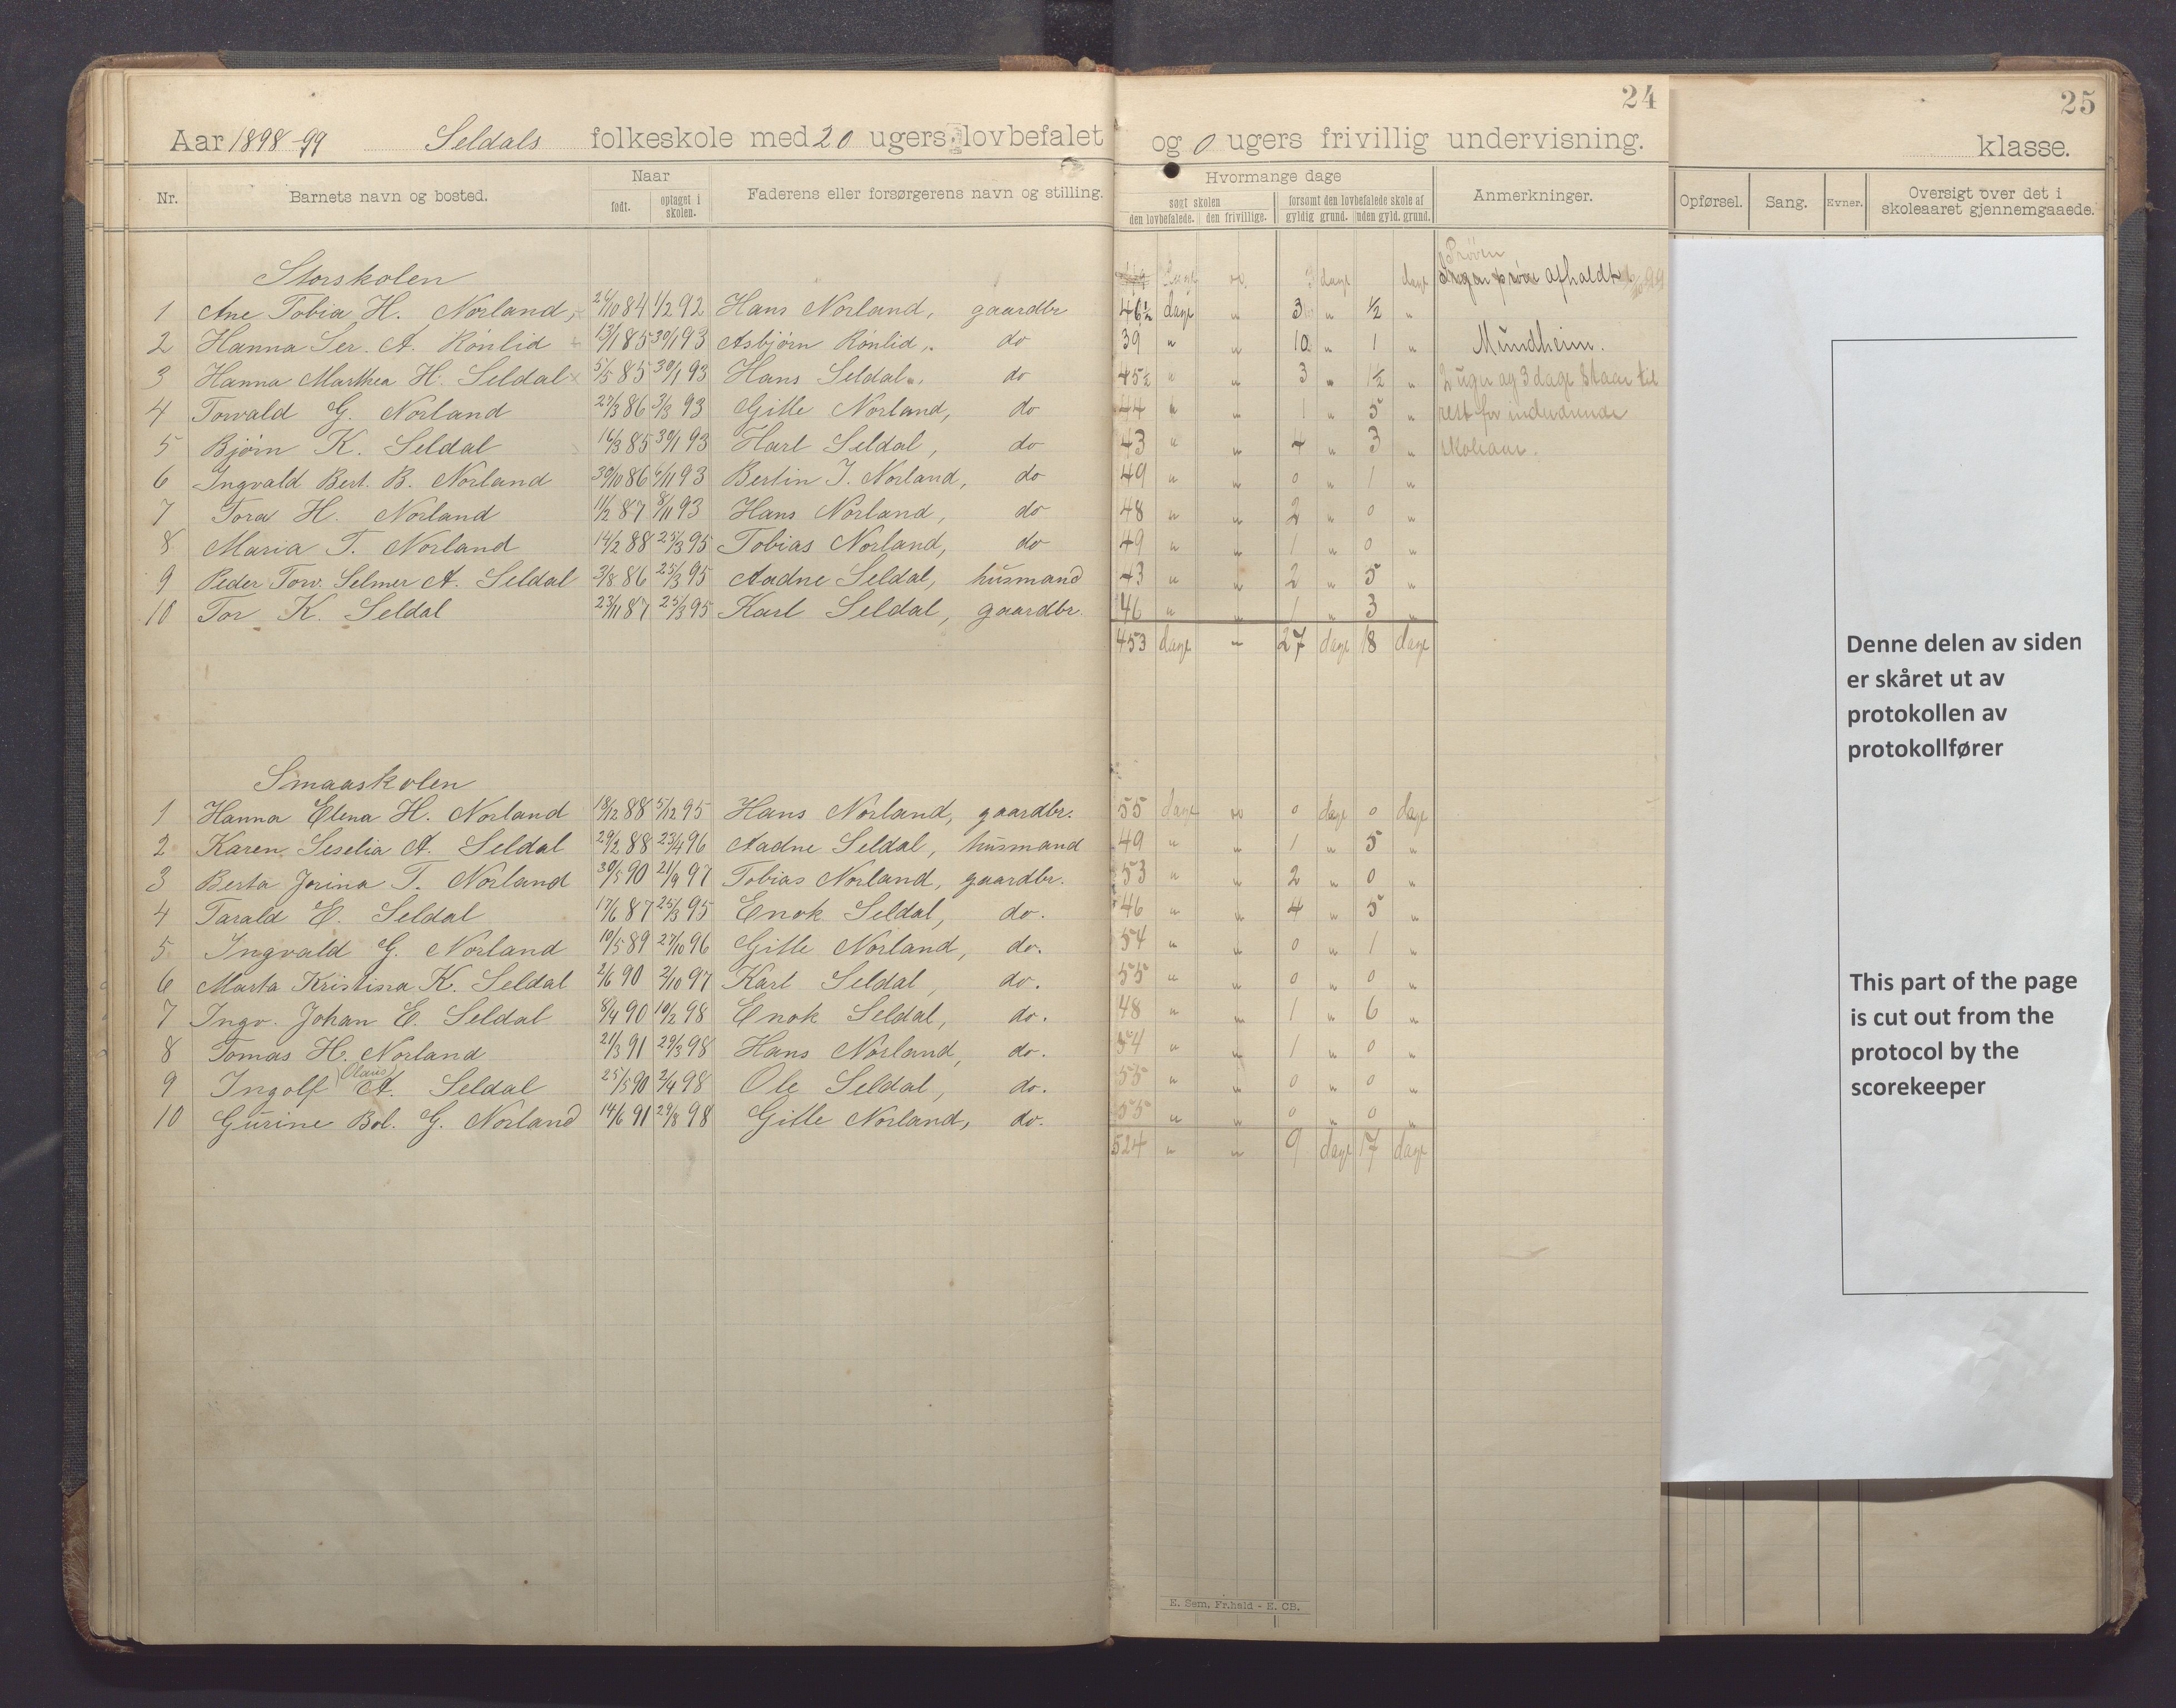 24
25
Aar 1898-99 Seldals folkeskole med 20 ugers lovbefalet og 0 ugers frivillig undervisning.
klasse.
Nr. Barnets navn og bosted. Naar født. optaget i skolen. Faderens eller forsørgerens navn og stilling.
Hvormange dage
søgt skolen forsømt den lovbefalede skole af
den lovbefalede. den frivillige. gyldig grund. uden gyld. grund.
Anmerkninger.
Opførsel. Sang. Evner. Oversigt over det i skoleaaret gjennemgaaede.
Storskolen
Prøven
afholdt
1 Ane Tobia H. Norland, 26/10 84 1/2 92 Hans Norland, gaardbr 46½ dage " 3 " ½ "
2 Hanna Ser. A. Rønlid 13/1 85 30/1 93 Asbjørn Rønlid, do 39 " " 10 " 1 " Mundheim.
3 Hanna Marthea H. Seldal 5/5 85 30/1 93 Hans Seldal, do 45½ " " 3 " 1½ " 2 uger og 3 dage staar til
4 Torvald G. Norland 27/3 86 3/3 93 Gitle Norland, do 44 " " 1 " 5 " rest for indeværende
5 Bjørn K. Seldal 16/3 85 30/1 93 Karl Seldal, do 43 " " 4 " 3 " skoleaar.
6 Ingvald Bert. B. Norland 30/10 86 6/11 93 Bertin J. Norland, do 49 " " 0 " 1 "
7 Tora H. Norland 11/2 87 8/11 93 Hans Norland, do 48 " " 2 " 0 "
8 Maria T. Norland 14/2 88 25/3 95 Tobias Norland, do 49 " " 1 " 0 "
9 Peder Tow. Selmer A. Seldal 3/8 86 25/3 95 Aadne Seldal, husmand 43 " " 2 " 5 "
10 Tor K. Seldal 23/11 87 25/3 95 Karl Seldal, gaardbr. 46 " " 1 " 3 "
453 dage " 27 dage 18 dage
Smaaskolen
1 Hanna Elena H. Norland 18/12 88 5/12 95 Hans Norland, gaardbr. 55 dage " 0 dage 0 dage
2 Karen Seselia A. Seldal 29/2 88 23/4 96 Aadne Seldal, husmand 49 " " 1 " 5 "
3 Berta Jorina T. Norland 30/5 90 21/9 97 Tobias Norland, gaardbr. 53 " " 2 " 0 "
4 Tarald E. Seldal 17/6 87 25/3 95 Enok Seldal, do. 46 " " 4 " 5 "
5 Ingvald G. Norland 10/5 89 27/10 96 Gitle Norland, do. 54 " " 0 " 1 "
6 Marta Kristina K. Seldal 2/6 90 2/10 97 Karl Seldal, do. 55 " " 0 " 0 "
7 Ingv. Johan E. Seldal 8/4 90 10/2 98 Enok Seldal, do. 48 " " 1 " 6 "
8 Tomas H. Norland 21/3 91 29/3 98 Hans Norland, do. 54 " " 1 " 0 "
9 Ingolf (Olaus) A. Seldal 25/5 90 2/4 98 Ole Seldal, do. 55 " " 0 " 0 "
10 Gurine Bol. G. Norland 14/6 91 29/8 98 Gitle Norland, do. 55 " " 0 " 0 "
524 " " 9 dage 17 dage
Denne delen av siden
er skåret ut av
protokollen av
protokollfører
This part of the page
is cut out from the
protocol by the
scorekeeper
E. Sem, Fr.hald - E. CB.